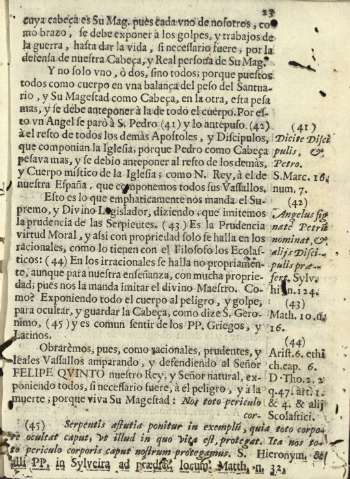 23
cuya cabeça es Su Mag. pues cada vno de nosotros, co-
mo brazo, se debe exponer à los golpes, y trabajos de
la guerra, hasta dar la vida, si necessario fuere, por la
defensa de nuestra Cabeça, y Real persona de Su Mag.
Y no solo vno, ò dos, sino todos; porque puestos
todos como cuerpo en vna balança del peso del Santua-
rio, y Su Magestad como Cabeça, en la otra, esta pesa
mas, y se debe anteponer à la de todo el cuerpo. Por es-
to vn Angel separò à S. Pedro (41) y lo antepuso (42)
à el resto de todos los demàs Apostoles, y Discipulos,
que componian la Iglesia; porque Pedro como Cabeça
pesava mas, y se debio anteponer al resto de los demàs,
y Cuerpo mistico de la Iglesia; como N. Rey, à el de
nuestra España, que componemos todos sus Vassallos.
Esto es lo que emphaticamente nos manda el Su-
premo, y Divino Legislador, diziendo, que imitemos
la prudencia de las Serpientes. (43) Es la Prudencia
virtud Moral, y assi con propriedad solo se halla en los
racionales, como lo tienen con el Filosofo los Ecolas-
ticos: (44) En los irracionales se halla no propriamen-
te, aunque para nuestra enseñanza, con mucha proprie-
dad; pues nos la manda imitar el divino Maestro. Co-
mo? Exponiendo todo el cuerpo al peligro, y golpe,
para ocultar, y guardar la Cabeça, como dize S. Gero-
nimo, (45) y es comun sentir de los PP. Griegos, y
Latinos.
Obrarèmos, pues, como racionales, prudentes, y
leales Vassallos amparando, y defendiendo al Señor
FELIPE QVINTO nuestro Rey, y Señor natural, ex-
poniendo todos, si necessario fuere, à el peligro, y à la
muerte; porque viva Su Magestad: Nos toto periculo
cor-
(41)
Dicite Disci
pulis, &
Petro.
S. Marc. 16.
num. 7.
(42)
Angelus sig
nate Petrũ
nominat, &
alijs Disci-
pulis præ-
fert. Sylv.
hi n. 124.
(43)
Math. 10. n.
16.
(44)
Arist. 6. ethi
ch. cap. 6.
D. Tho. 2. 2
q. 47. art. 1.
& 4. & alij
Scolastici.
(45) Serpentis astutia ponitur in exempli, quia toto corpo-
rè ocultat caput, vt illud in quo vita est, protegat. Ita nos to-
to periculo corporis caput nostrum protegamus. S. Hieronym. &
alii PP. in Sylveira ad prædict. locum. Matth. n. 32.